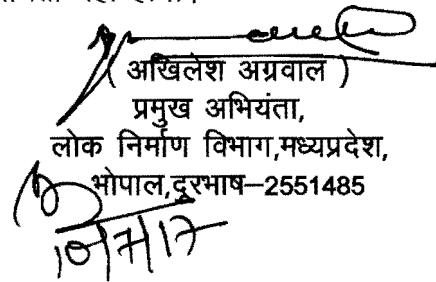 ( अखिलेश अग्रवाल )
प्रमुख अभियंता,
लोक निर्माण विभाग,मध्यप्रदेश,
भोपाल,दुरभाष–2551485
10/7/17